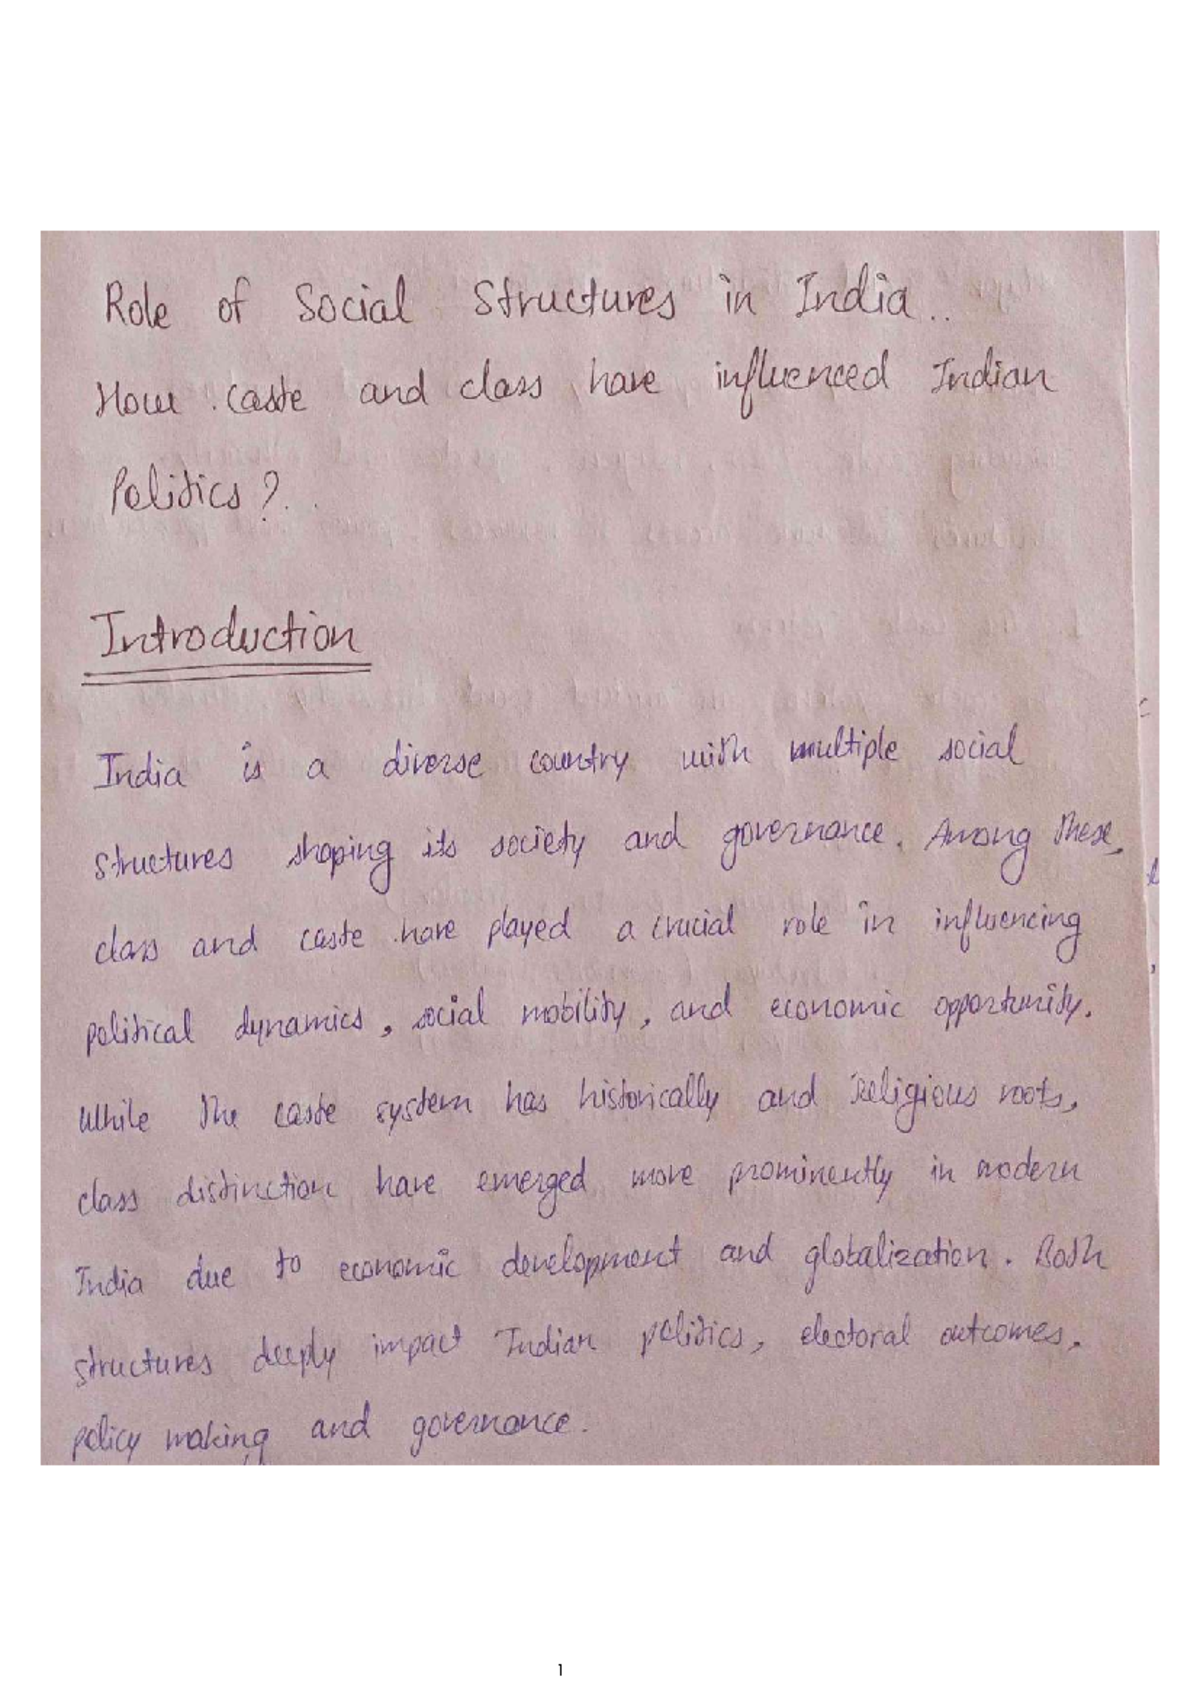 Role of Social Structures in India..
How caste and class have influenced Indian
Politics?.
Introduction
India is a diverse country with multiple social
structures shaping its society and governance. Among these,
class and caste have played a crucial role in influencing
political dynamics, social mobility, and economic opportunity.
While the caste system has historically and religious roots,
class distinction have emerged more prominently in modern
India due to economic development and globalization. Both
structures deeply impact Indian politics, electoral outcomes,
policy making and governance.
1